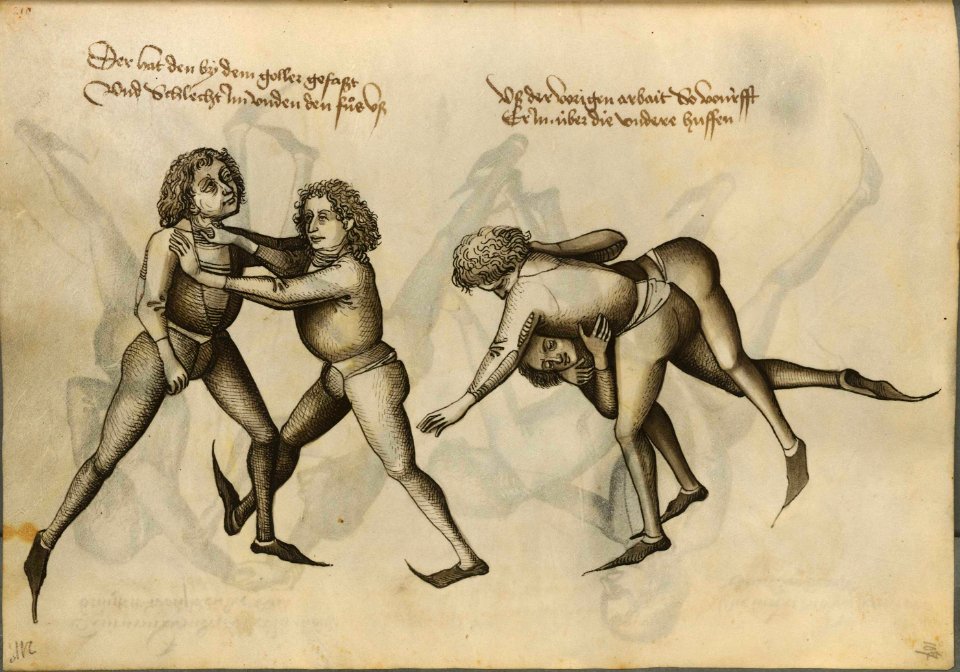 Der hat den by dem goller gefasst
Vnd Schlecht Im vnden den fůs vß
Vß der vorigen arbait So würfft
Er In über die vndere huffen